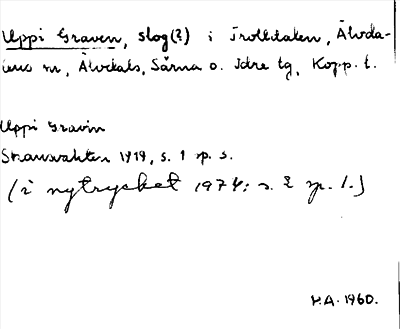 Uppi Graven, slog(?) i Trolldalen, Älvda-
lens sn, Älvdals, Särna o. Idre tg, Kopp. l.
Uppi Gravin
Skansvakten 1919, s. 1 sp. s.
(i nytrycket 1974: s. 2 sp. 1.)
H.A. 1960.